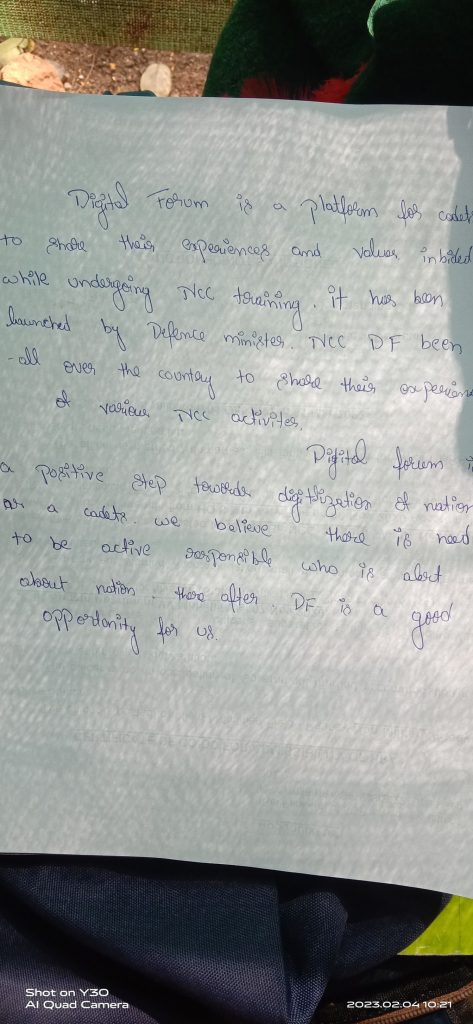 Digital Forum is a platform for cadets
to share their experiences and values inbided
while undergoing NCC training. it has been
launched by Defence minister. NCC DF been
-all over the country to share their experien
of various NCC activites.
Digital forum i
a positive step towards digitlization of nation
as a cadets. we believe there is need
to be active responsible who is alert
about nation. there after. DF is a good
oppertonity for us.
Shot on Y30
AI Quad Camera
2023.02.04 10:21